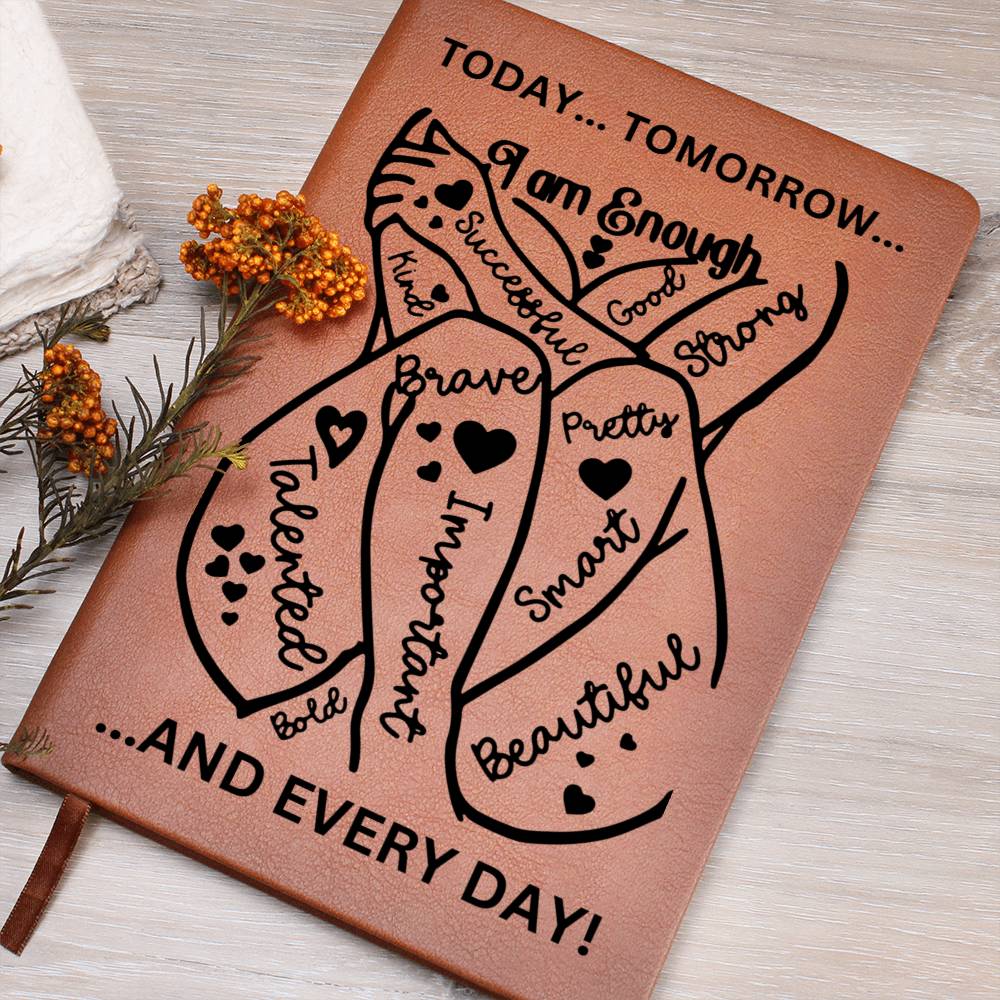 TODAY... TOMORROW...
I am Enough
Successful
Kind
Good
Strong
Brave
Pretty
Talented
Important
Smart
Beautiful
Bold
...AND EVERY DAY!